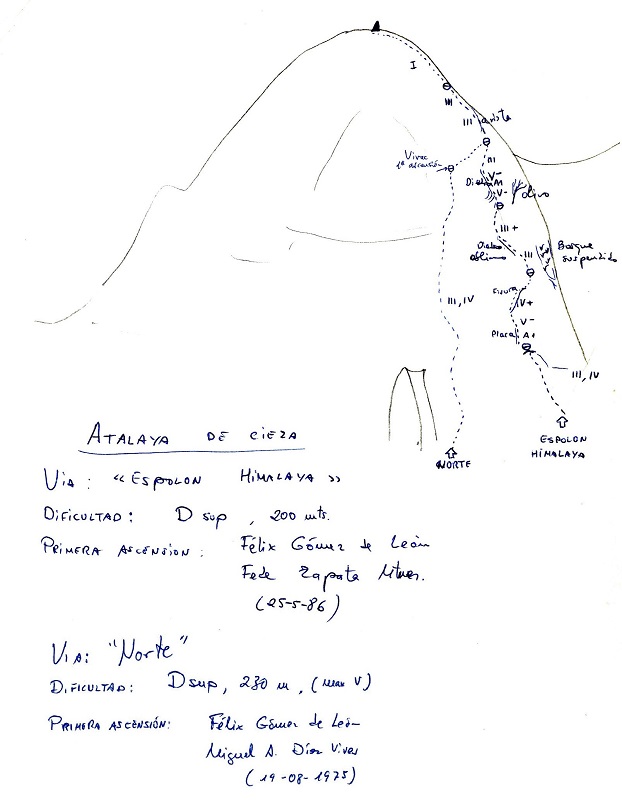 I
III
III arista
Vivac
1ª ascensión
III
V-
Diedro A1
V-
Olivo
III+
Diedro
oblicuo
III
Bosque
suspendido
Fisura
V+
V-
Placa A1
III, IV
III, IV
NORTE
ESPOLON
HIMALAYA
ATALAYA DE CIEZA
VIA: "ESPOLON HIMALAYA"
DIFICULTAD: D sup, 200 mts.
PRIMERA ASCENSION: Félix Gómez de León
Fede Zapata
(25-5-86)
VIA: "Norte"
DIFICULTAD: D sup, 230 m, (max V)
PRIMERA ASCENSIÓN: Félix Gómez de León
Miguel A. Díez Vives
(19-08-1975)